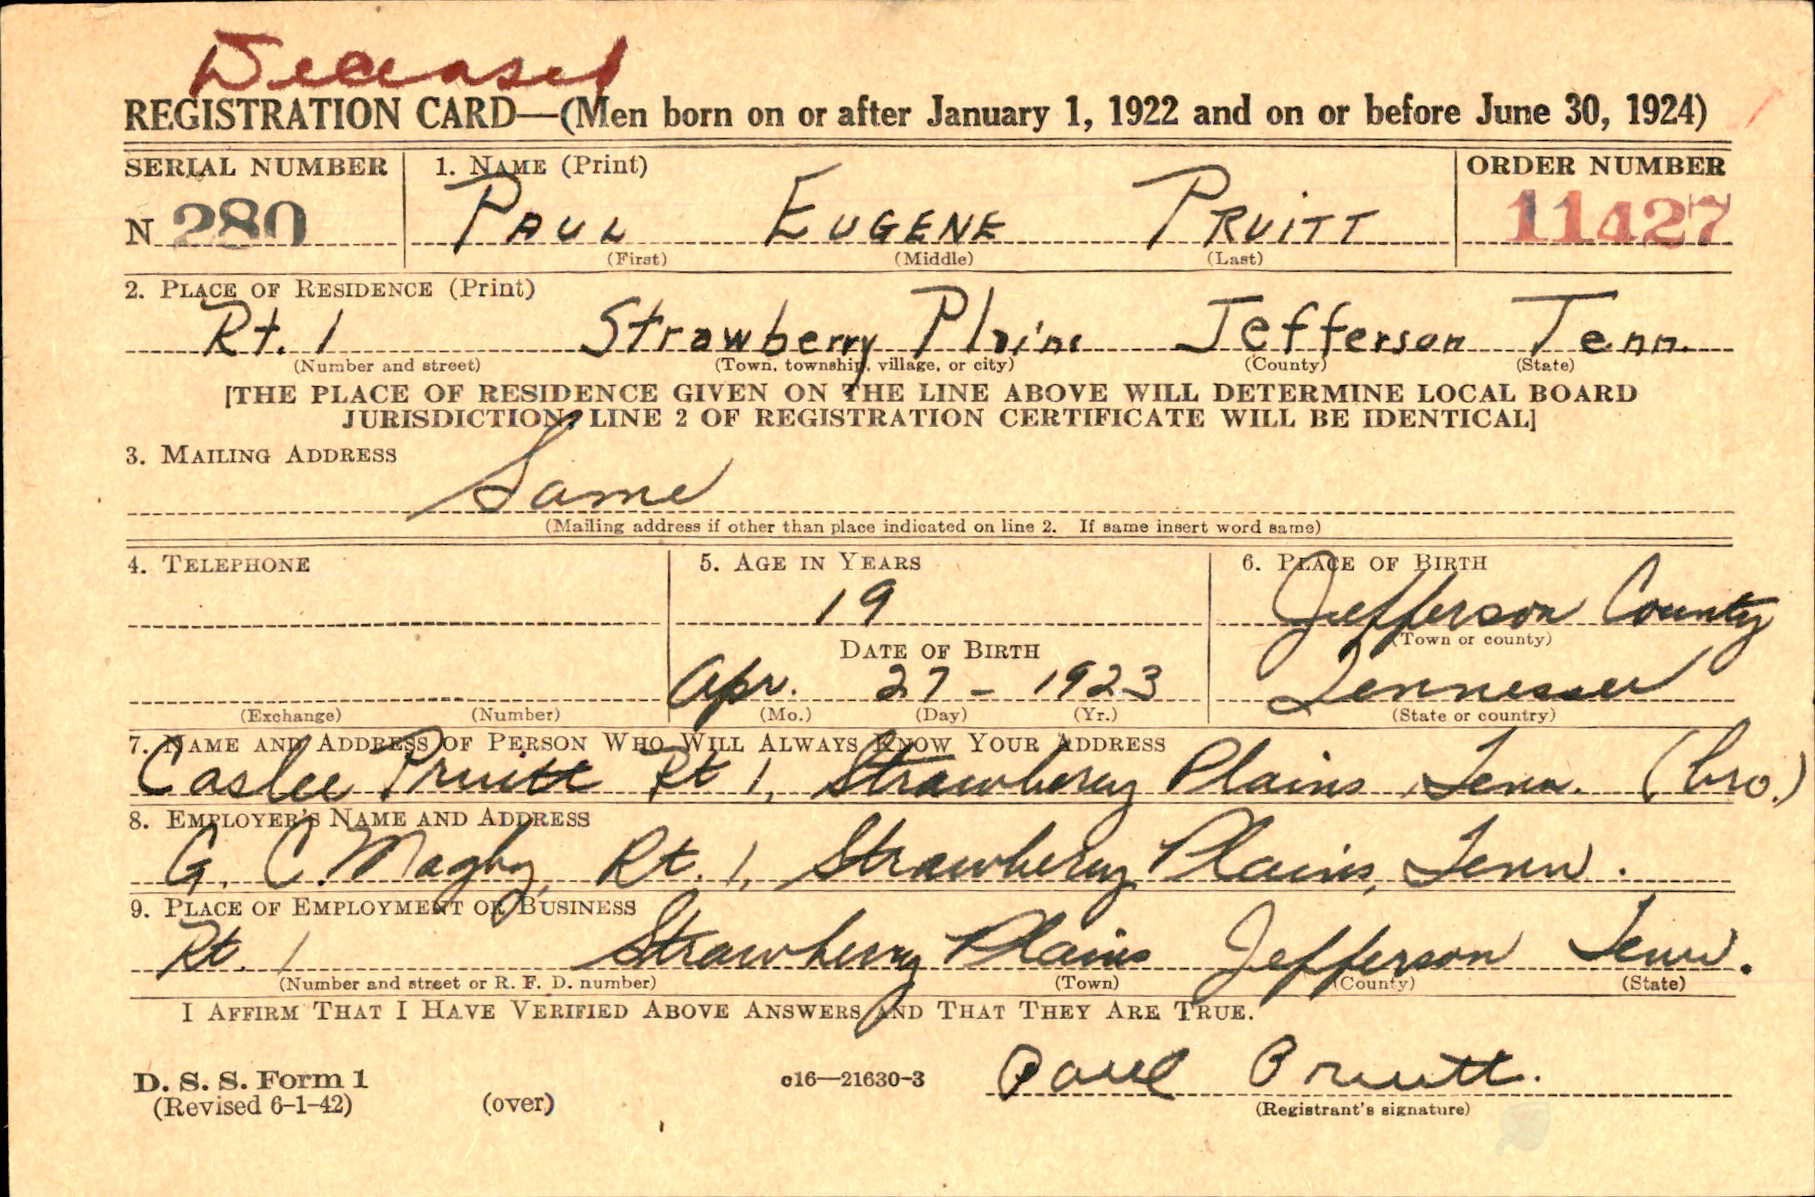 Deceased
REGISTRATION CARD—(Men born on or after January 1, 1922 and on or before June 30, 1924)
SERIAL NUMBER 1. NAME (Print) ORDER NUMBER
N 280 PAUL EUGENE PRUITT 11427
(First) (Middle) (Last)
2. PLACE OF RESIDENCE (Print)
Rt. 1 Strawberry Plains Jefferson Tenn.
(Number and street) (Town, township, village, or city) (County) (State)
[THE PLACE OF RESIDENCE GIVEN ON THE LINE ABOVE WILL DETERMINE LOCAL BOARD
JURISDICTION; LINE 2 OF REGISTRATION CERTIFICATE WILL BE IDENTICAL]
3. MAILING ADDRESS
Same
(Mailing address if other than place indicated on line 2. If same insert word same)
4. TELEPHONE 5. AGE IN YEARS 6. PLACE OF BIRTH
19 Jefferson County
DATE OF BIRTH (Town or county)
Apr. 27 - 1923 Tennessee
(Exchange) (Number) (Mo.) (Day) (Yr.) (State or country)
7. NAME AND ADDRESS OF PERSON WHO WILL ALWAYS KNOW YOUR ADDRESS
Caslee Pruitt Rt 1, Strawberry Plains, Tenn. (bro.)
8. EMPLOYER'S NAME AND ADDRESS
G. C. Magby, Rt. 1, Strawberry Plains, Tenn.
9. PLACE OF EMPLOYMENT OR BUSINESS
Rt. 1 Strawberry Plains Jefferson Tenn.
(Number and street or R. F. D. number) (Town) (County) (State)
I AFFIRM THAT I HAVE VERIFIED ABOVE ANSWERS AND THAT THEY ARE TRUE.
D. S. S. Form 1 c16—21630-3 Paul Pruitt.
(Revised 6-1-42) (over) (Registrant's signature)